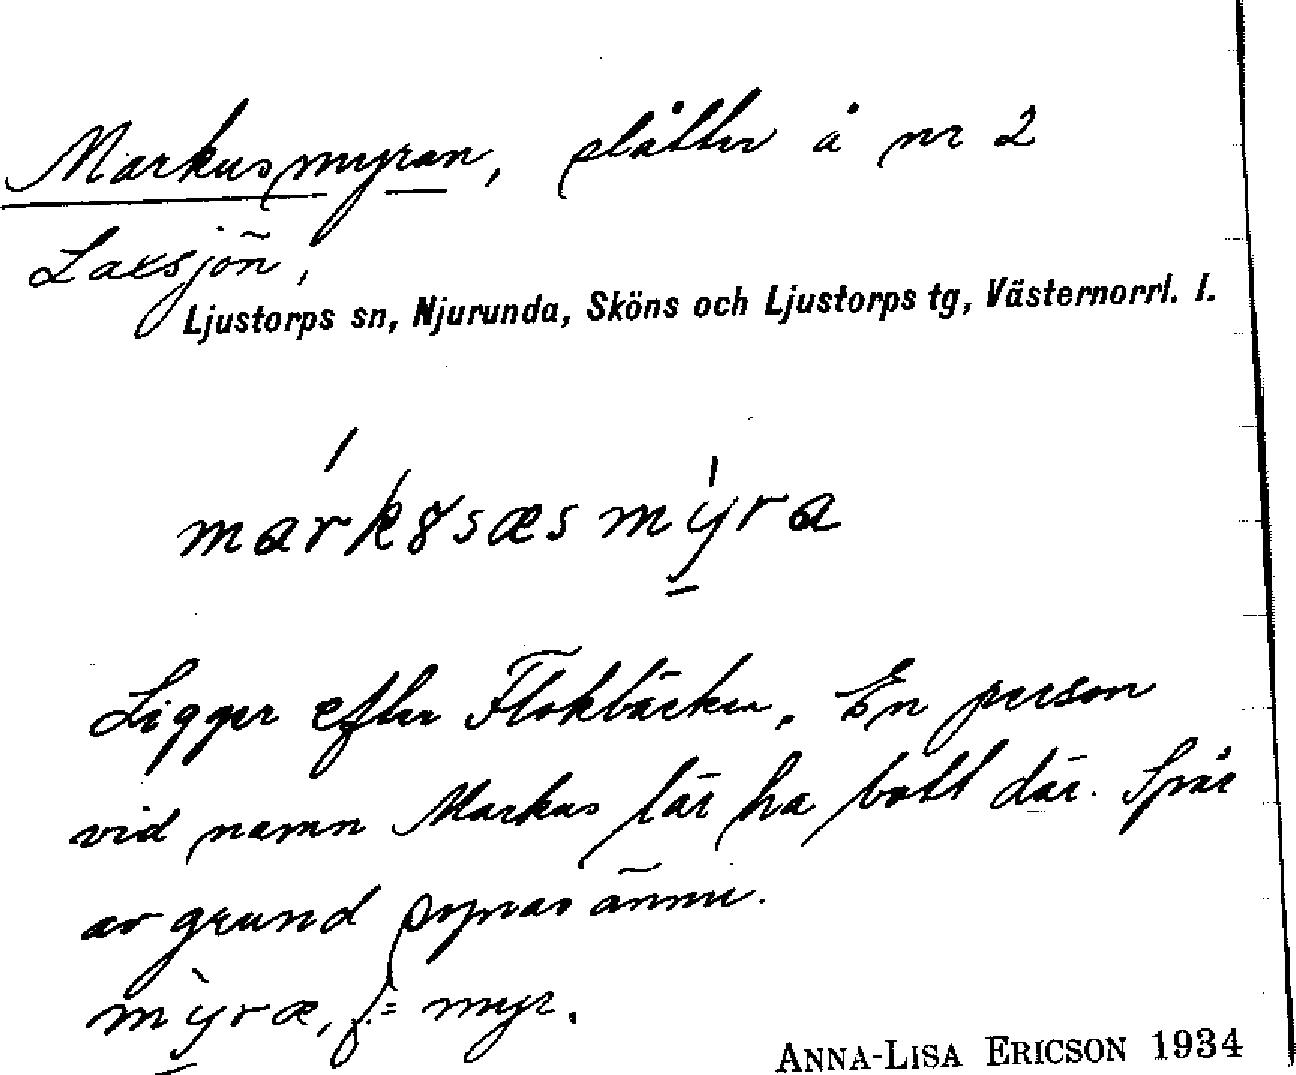 Markusmyran, slåtter å nr 2
Laxsjön,
Ljustorps sn, Njurunda, Sköns och Ljustorps tg, Västernorrl. l.
márk8sæsmýra
Ligger efter Flokbäcken. En person
vid namn Markus lär ha bott där. Spår
av grund synas ännu.
mỳræ, f. = myr.
ANNA-LISA ERICSON 1934